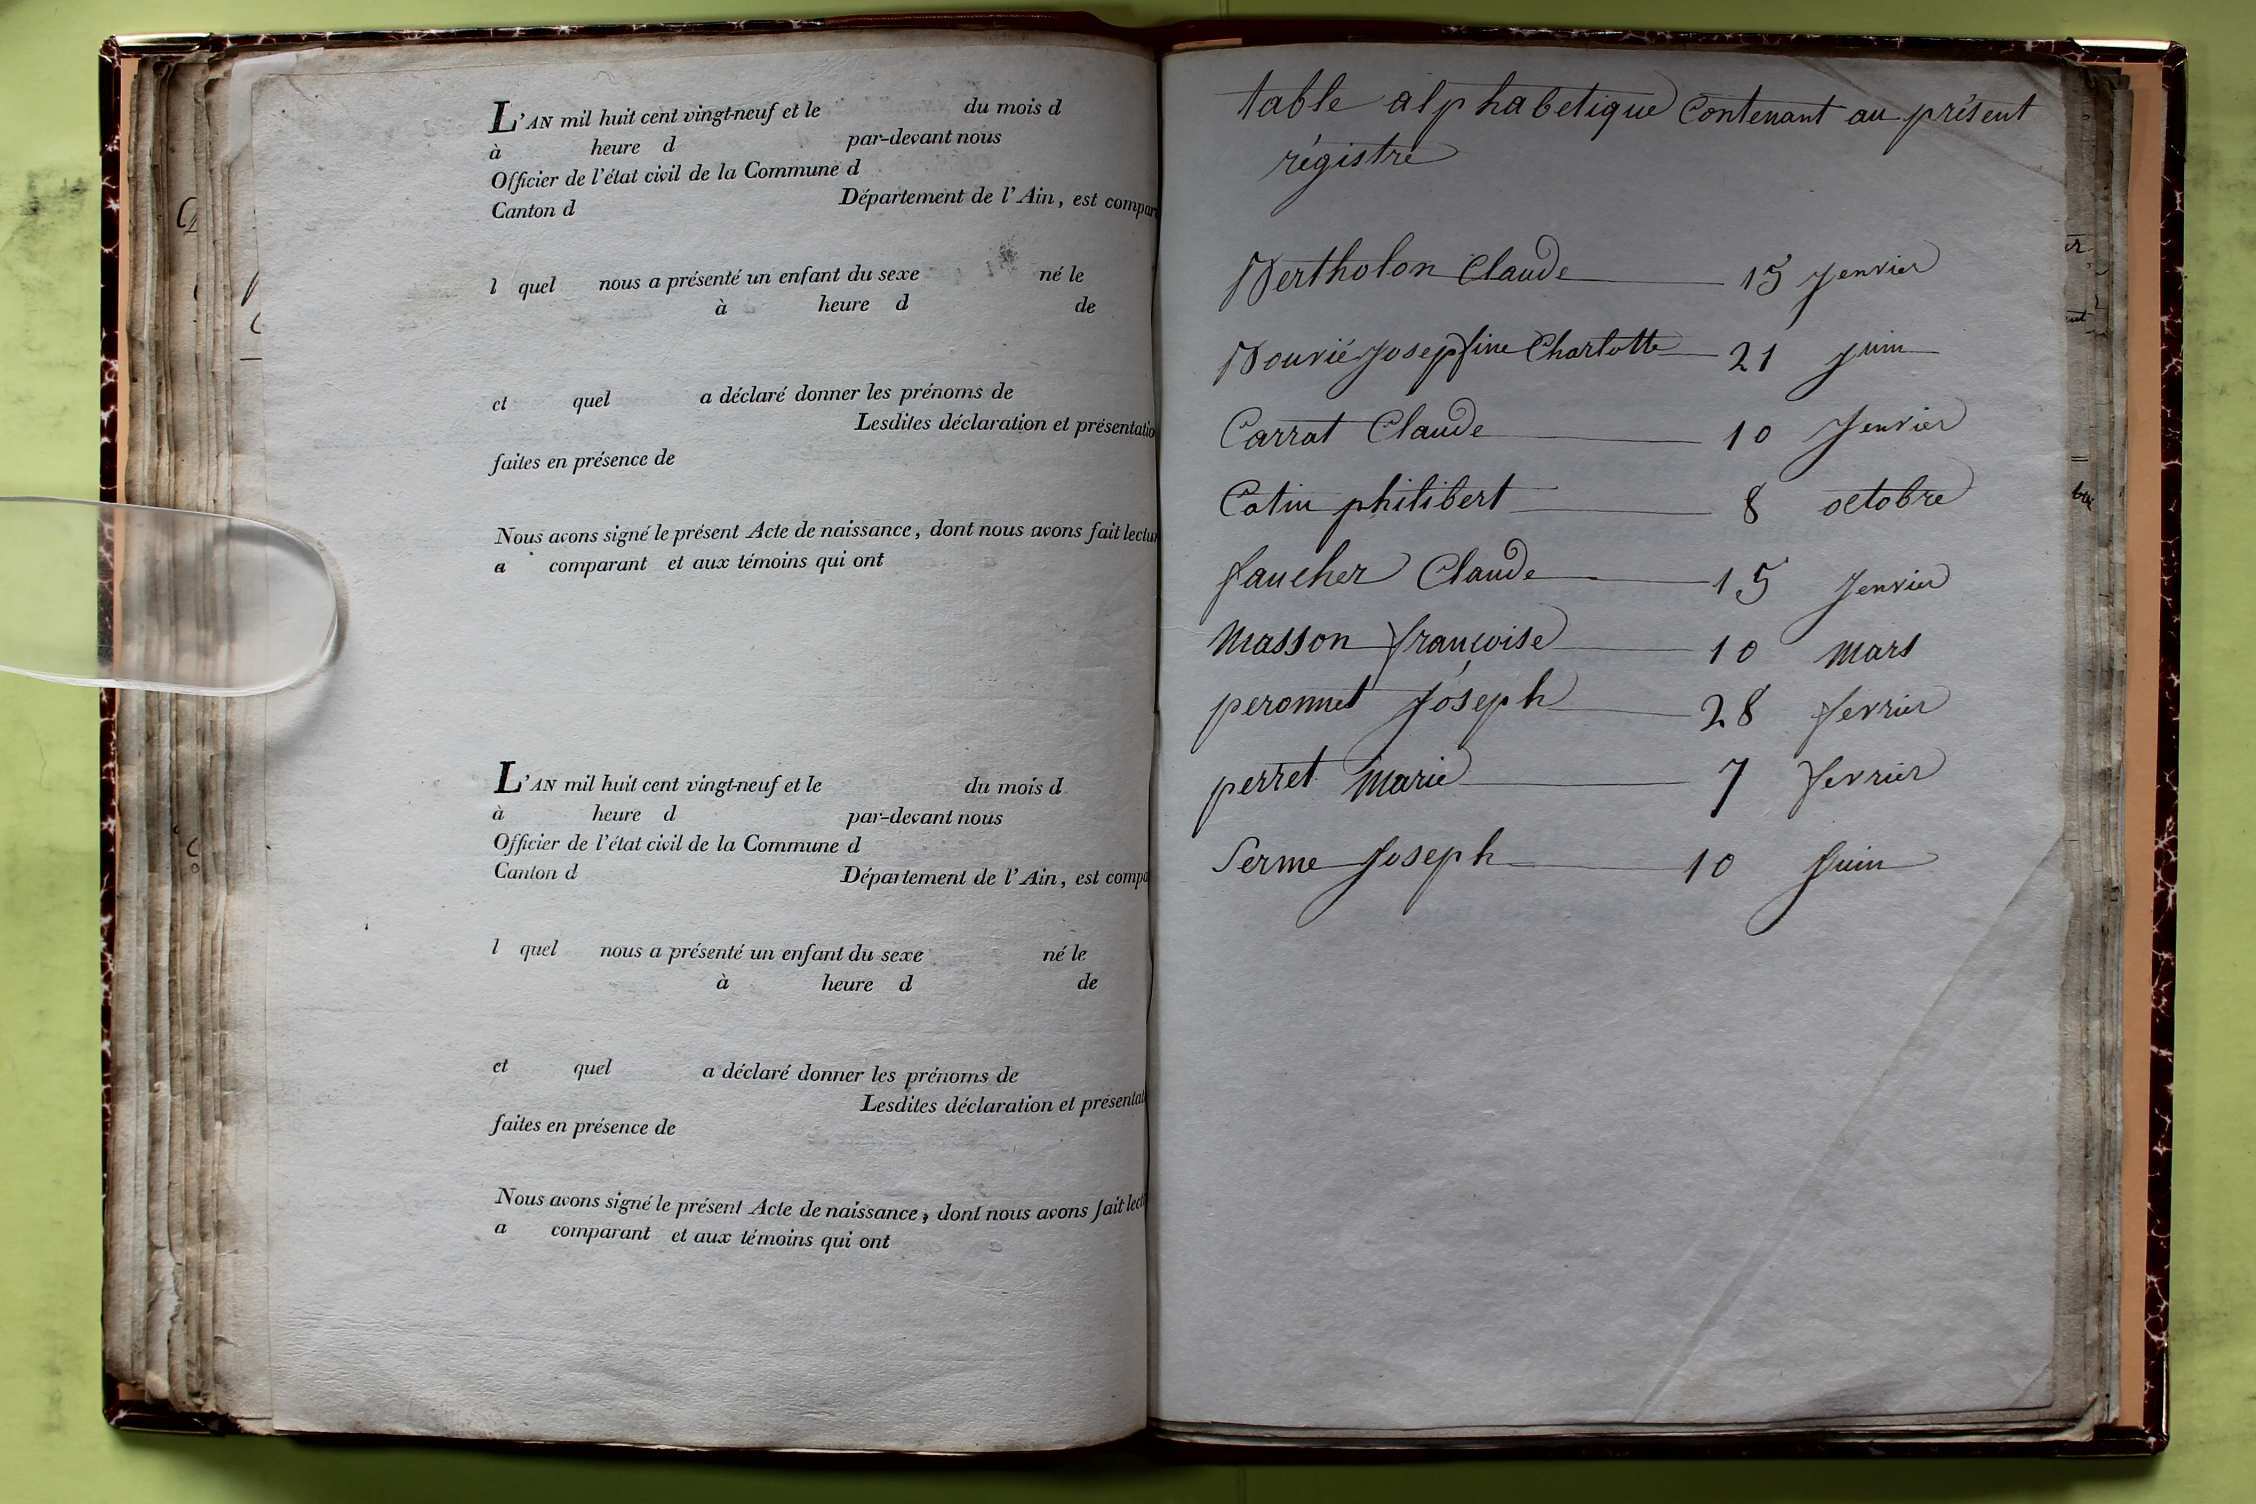 L'AN mil huit cent vingt-neuf et le du mois d
à heure d par-devant nous
Officier de l'état civil de la Commune d
Canton d Département de l'Ain, est compar
l quel nous a présenté un enfant du sexe né le
à heure d de
et quel a déclaré donner les prénoms de
Lesdites déclaration et présentatio
faites en présence de
Nous avons signé le présent Acte de naissance, dont nous avons fait lectur
a comparant et aux témoins qui ont
L'AN mil huit cent vingt-neuf et le du mois d
à heure d par-devant nous
Officier de l'état civil de la Commune d
Canton d Département de l'Ain, est compa
l quel nous a présenté un enfant du sexe né le
à heure d de
et quel a déclaré donner les prénoms de
Lesdites déclaration et présentat
faites en présence de
Nous avons signé le présent Acte de naissance, dont nous avons fait lect
a comparant et aux témoins qui ont
table alphabetique Contenant au présent
régistre
Bertholon Claude 15 Jenvier
Bouvié Josepfine Charlotte 21 Juin
Carrat Claude 10 Jenvier
Catin philibert 8 octobre
faucher Claude 15 Jenvier
Masson françoise 10 Mars
peronnet Joseph 28 fevrier
perret Marie 7 fevrier
Serme Joseph 10 Juin